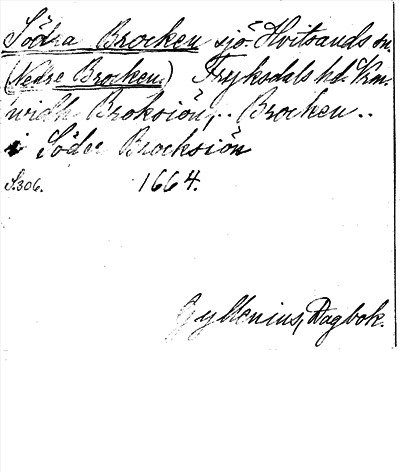 Södra Brocken sjö. Hvitsands sn.
(Nedre Brocken) Fryksdals hd. Vrm.
widh Broksiön,.. Brocken..
i Söder Brocksiön
S. 306. 1664.
Gyllenius, Dagbok.